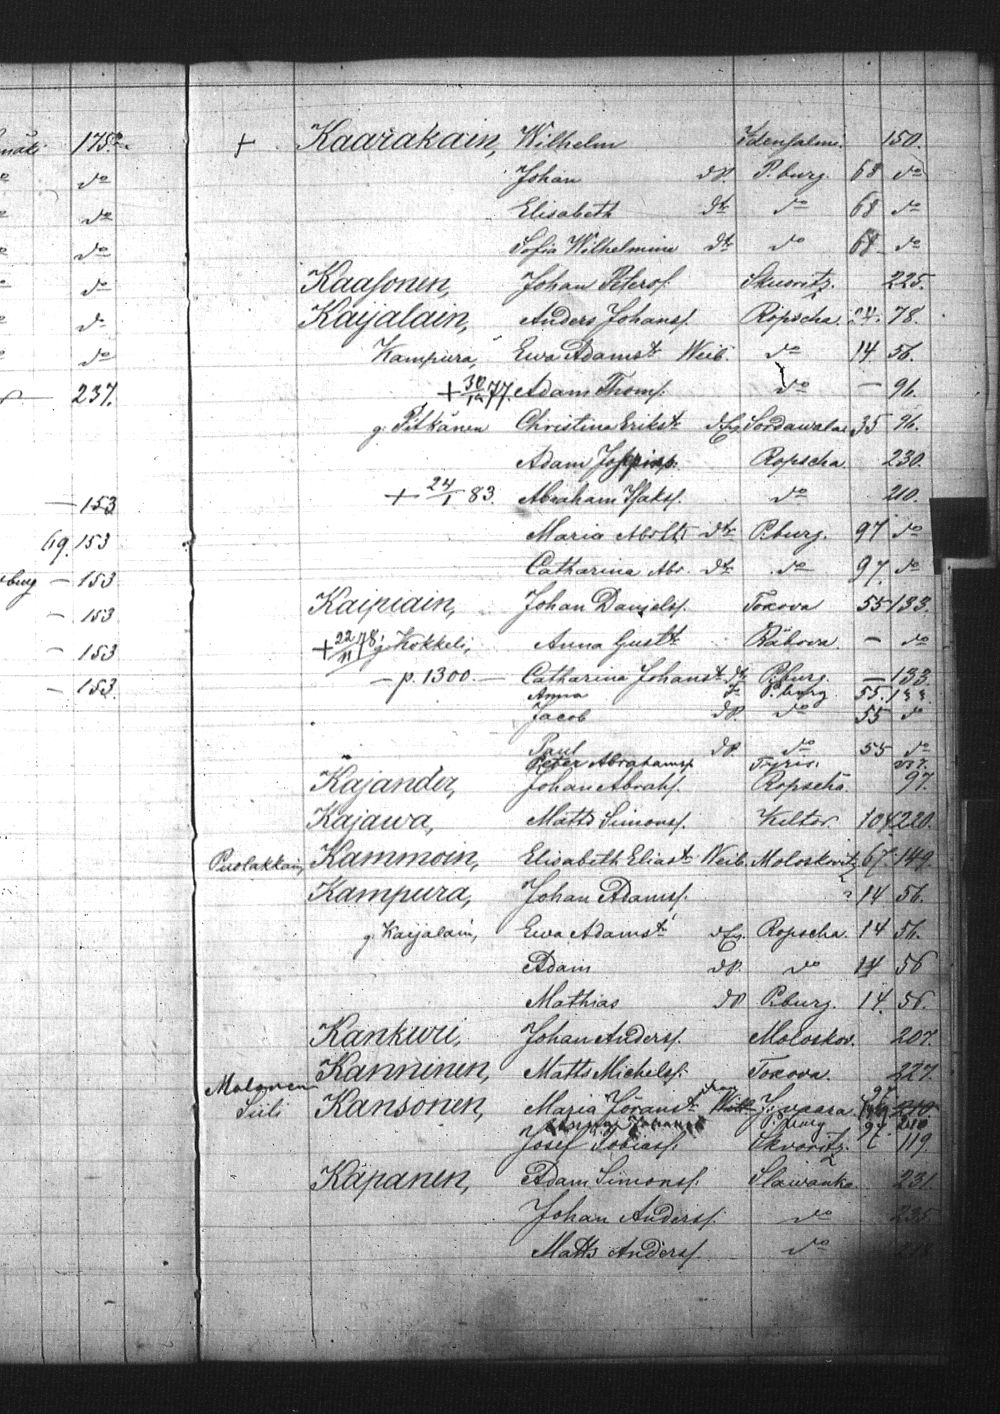 175.
do
do
do
do
do
do
237.
153
69. 153
burg 153
153
153
153.
+ Kaarakain, Wilhelm Idensalmi. 150.
Johan dP. P.burg. 68 do
Elisabeth dtr do 68 do
Sofia Wilhelmine dtr do 68 do
Kaasonen, Johan Petersf. Skworitz. 225.
Kaijalain, Anders Johansf. Ropscha. 78.
Kampura, Ewa Adamst Weib. do 14 56.
+ 30/12 77. Adam Thomsf. do — 96.
g. Pitkänen Christina Erikst dEg Sordawala 35 96.
Adam Ropscha 230.
+ 24/1 83. Abraham Isaksf. do 210.
Maria dtr P.burg. 97 do
Catharina Abr. dtr do 97. do
Kaipiain, Johan Danjelsf. Toxova 55 133.
+ 22/11 78 g. Kokkeli, Anna Gustt Räbova. — do
— p. 1300. — Catharina Johanst dtr P.burg. — 133.
Anna P.burg 55. 133
Jacob dP. do 55 do
Paul dP. do 55 do
Peter Abrahamsf Tyris.
Kajander, Johan Abrahsf. Ropscha 97.
Kajawa, Matts Simonsf. Keltos. 104 220.
Puolakkain, Kammoin, Elisabeth Eliast Weib. Moloskovitz 67. 149.
Kampura, Johan Adamsf. ? 14 56.
g. Kaijalain, Ewa Adamst dEg. Ropscha. 14 56.
Adam dP. do 14 56
Mathias dP P.burg. 14. 56.
Kankuri, Johan Andersf. Moloskov. 207.
Kanninen, Matts Michelsf. Toxova. 227
Molonen
Siili Kansonen, Maria Jöranst 97 210.
P.burg 97. 210
Josef Tobiasf. Skvoritz. 119.
Käpanen, Adam Simonsf. Slawanka. 231.
Johan Andersf. do 235
Matts Andersf. do